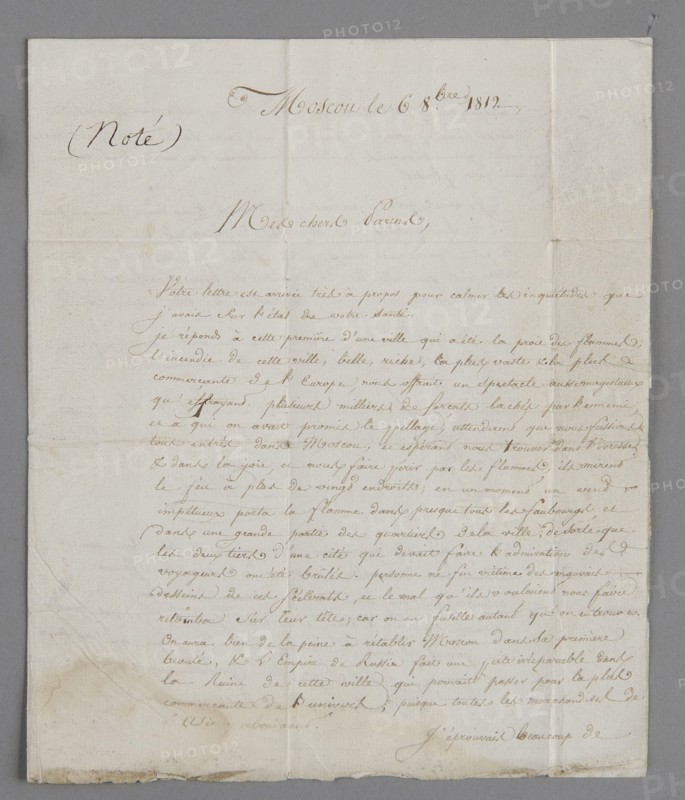 Moscou le 6 8bre 1812
(Noté)
Mes chers Parens,
Votre lettre est arrivée très à propos pour calmer les inquiétudes que
j'avais sur l'état de votre santé.
je réponds à cette première d'une ville qui a été la proie des flammes,
l'incendie de cette ville, belle, riche, la plus vaste & la plus
commercente de l'Europe, nous offrait un spectacle aussi
qu'effrayant. plusieurs milliers de forcats lachés par l'ennemie,
et à qui on avait promis le pillage, attendirent que nous fussions
tous entrés dans Moscou, et espérant nous trouver dans l'ivresse
& dans la joie, et nous faire périr par les flammes, ils mirent
le feu à plus de vingt endroits; en un moment un vent
impétueux porta la flamme dans presque tous les faubourgs et
dans une grande partie des quartiers de la ville; de sorte que
les deux tiers d'une cité qui devait faire l'admiration des
voyageurs ont été brulés. personne ne fut victime des
desseins de ces scélérats, et le mal qu'ils vouloient nous faire
retomba sur leur tête; car on en fusille autant qu'on en trouve.
On aura bien de la peine à rétablir Moscou dans sa première
beauté, & l'Empire de Russie fait une perte irréparable dans
la Ruine de cette ville qui pouvait passer pour la plus
commercente de l'univers, puisque toutes les marchandises de
J'éprouvais beaucoup de